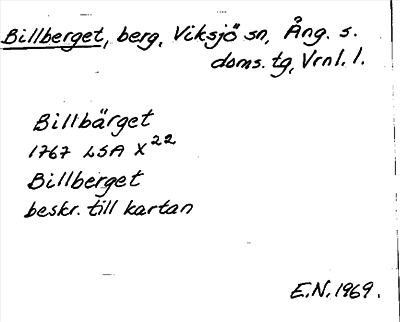 Billberget, berg, Viksjö sn, Ång. s.
doms. tg, Vrnl. l.
Billbärget
1767 LSA X22
Billberget
beskr. till kartan
E.N. 1969.